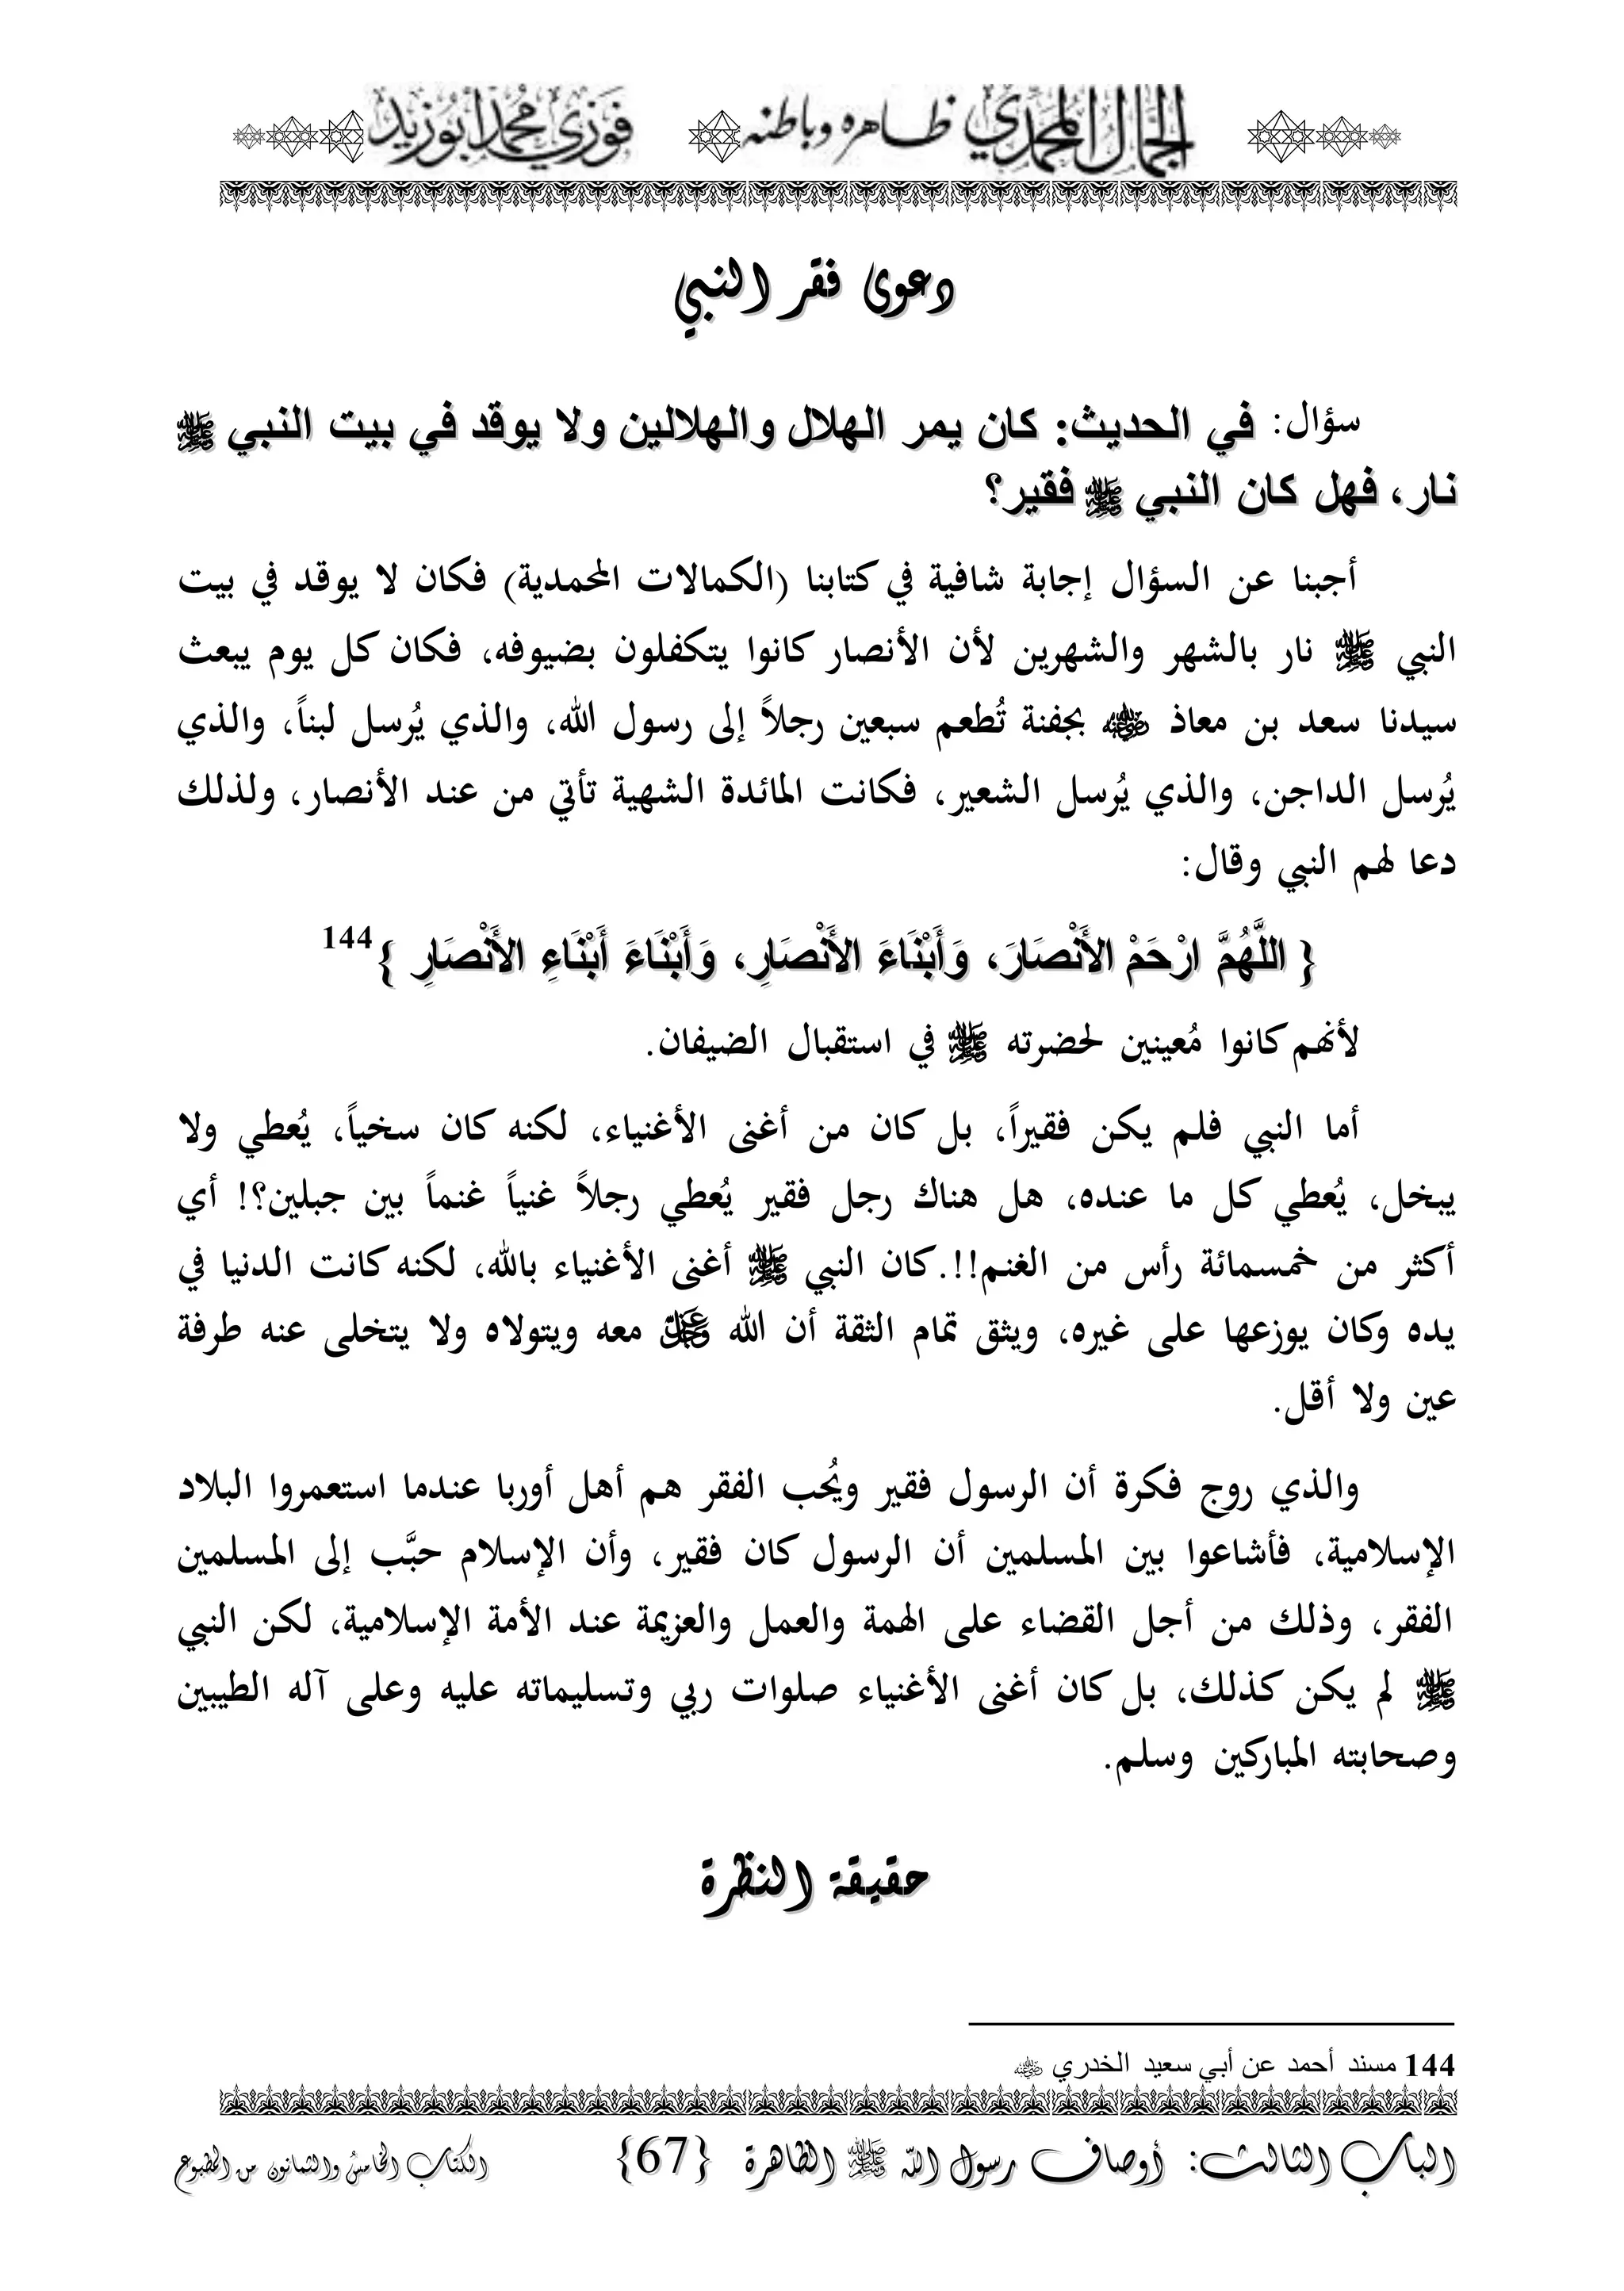 الجمال المحمدي ظاهره وباطنه فوزي محمد أبوزيد
دعوى فقر النبي
سؤال: في الحديث: كان يمر الهلال والهلالين ولا يوقد في بيت النبي ﷺ
نار، فهل كان النبي ﷺ فقير؟
أجبنا عن السؤال إجابة شافية في كتابنا (الكمالات المحمدية) فكان لا يوقد في بيت
النبي ﷺ نار بالشهر والشهرين لأن الأنصار كانوا يتكفلون بضيوفه، فكان كل يوم يبعث
سيدنا سعد بن معاذ رضي الله عنه بجفنة تُطعم سبعين رجلاً إلى رسول الله، والذي يُرسل لبناً، والذي
يُرسل الداجن، والذي يُرسل الشعير، فكانت المائدة الشهية تأتي من عند الأنصار، ولذلك
دعا لهم النبي وقال:
{ اللَّهُمَّ ارْحَمْ الأَنْصَارَ، وَأَبْنَاءَ الأَنْصَارِ، وَأَبْنَاءَ أَبْنَاءِ الأَنْصَارِ }144
لأنهم كانوا مُعينين لحضرته ﷺ في استقبال الضيفان.
أما النبي فلم يكن فقيراً، بل كان من أغنى الأغنياء، لكنه كان سخياً، يُعطي ولا
يبخل، يُعطي كل ما عنده، هل هناك رجل فقير يُعطي رجلاً غنياً غنماً بين جبلين؟! أي
أكثر من خمسمائة رأس من الغنم!!.كان النبي ﷺ أغنى الأغنياء بالله، لكنه كانت الدنيا في
يده وكان يوزعها على غيره، ويثق تمام الثقة أن الله عز وجل معه ويتولاه ولا يتخلى عنه طرفة
عين ولا أقل.
والذي روج فكرة أن الرسول فقير ويُحب الفقر هم أهل أوربا عندما استعمروا البلاد
الإسلامية، فأشاعوا بين المسلمين أن الرسول كان فقير، وأن الإسلام حبَّب إلى المسلمين
الفقر، وذلك من أجل القضاء على الهمة والعمل والعزيمة عند الأمة الإسلامية، لكن النبي
ﷺ لم يكن كذلك، بل كان أغنى الأغنياء صلوات ربي وتسليماته عليه وعلى آله الطيبين
وصحابته المباركين وسلم.
حقيقة النظرة
144 مسند أحمد عن أبي سعيد الخدري رضي الله عنه
الباب الثالث: أوصاف رسول الله ﷺ الظاهرة {67} الكتاب الخامس والثمانون من المطبوع